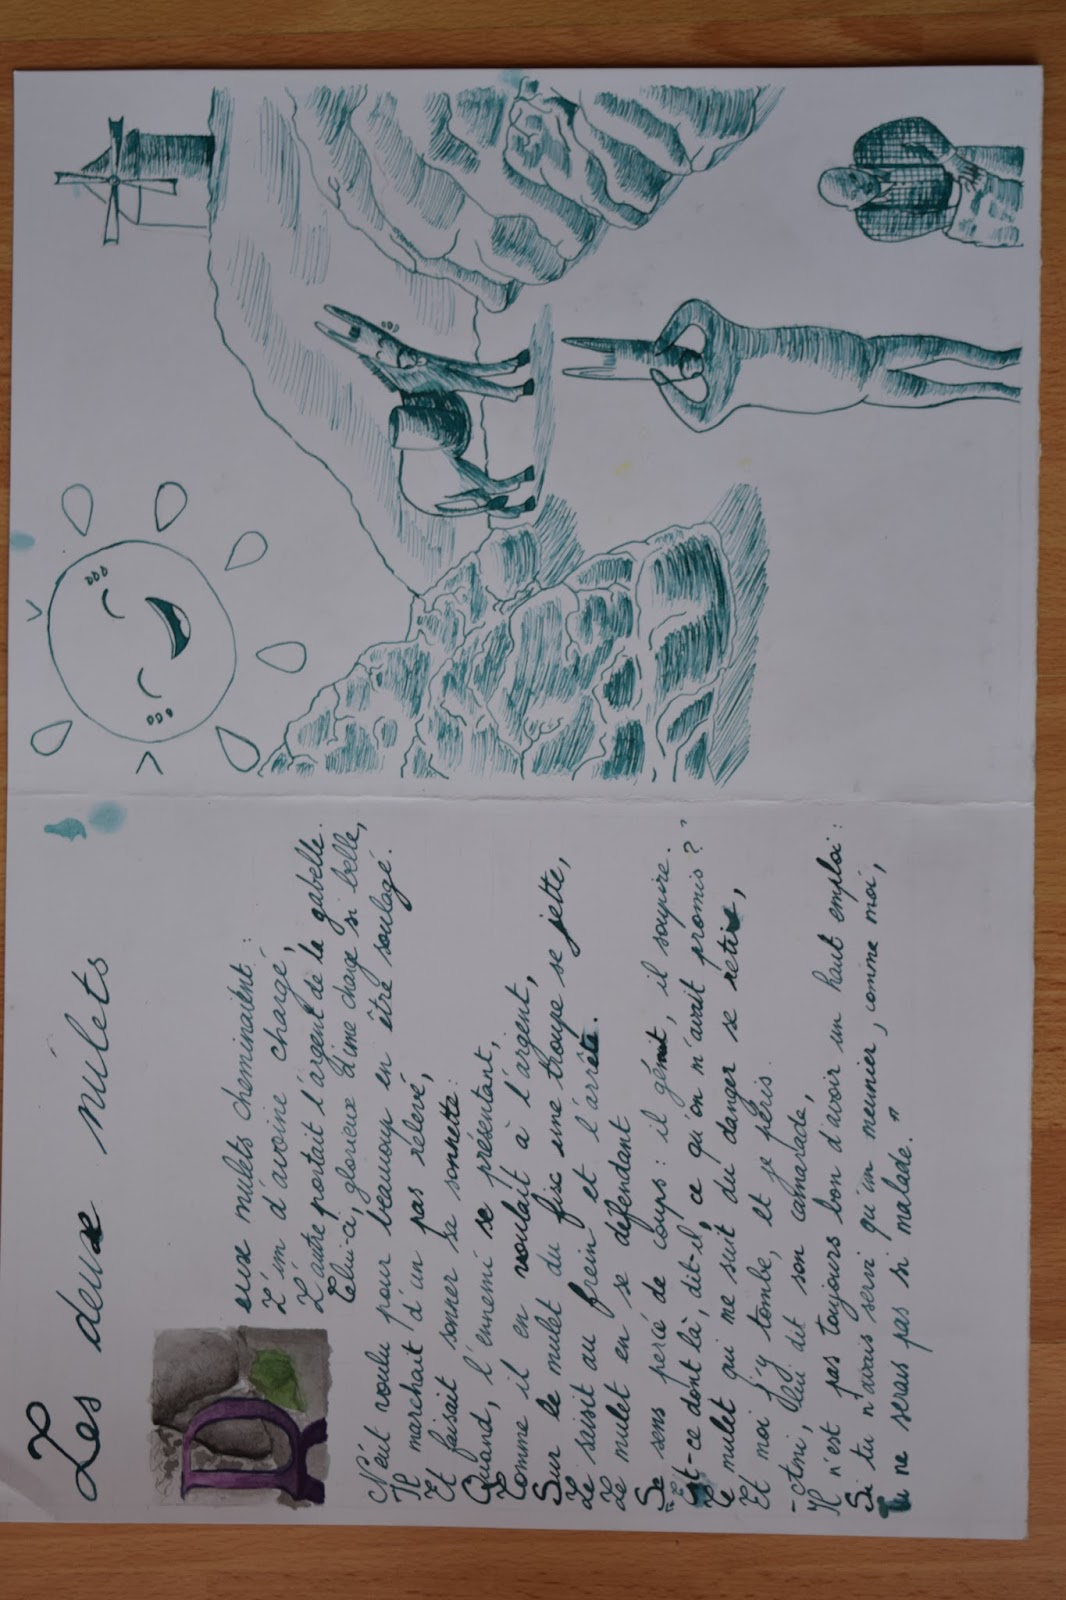 Les deux mulets
Deux mulets cheminaient :
L'un d'avoine chargé,
L'autre portait l'argent de la gabelle.
Celui-ci, glorieux d'une charge si belle,
N'eût voulu pour beaucoup en être soulagé.
Il marchait d'un pas relevé,
Et faisait sonner sa sonnette :
Quand, l'ennemi se présentant,
Comme il en voulait à l'argent,
Sur le mulet du fisc une troupe se jette,
Le saisit au frein et l'arrête.
Le mulet en se défendant
Se sens percé de coups : il gémit, il soupire.
"Est-ce dont là, dit-il, ce qu'on m'avait promis ?"
Ce mulet qui me suit du danger se retire,
Et moi j'y tombe, et je péris.
- Ami, lui dit son camarade,
Il n'est pas toujours bon d'avoir un haut emploi :
Si tu n'avais servi qu'un meunier, comme moi,
Tu ne serais pas si malade."